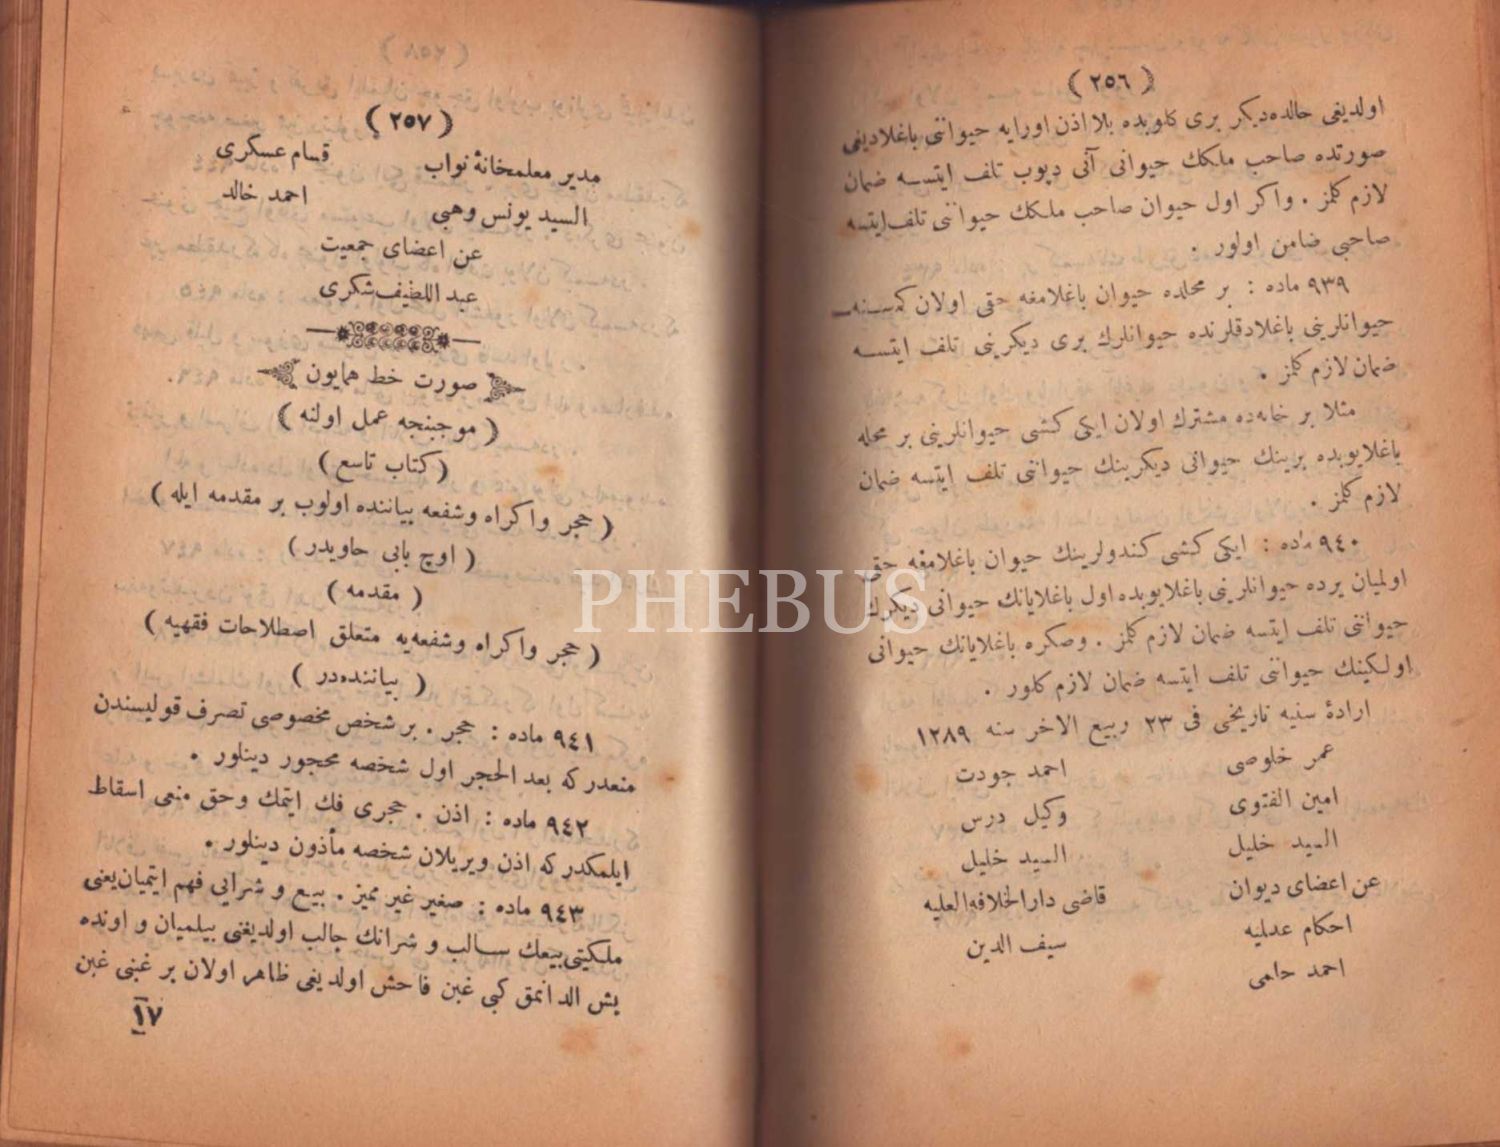 ( ٢٥٦ )
اولديغى حالده ديكر برى كلوبده بلا اذن اورايه حيواننى باغلاديغى
صورتده صاحب ملكك حيوانى آنى دپوب تلف ايتسه ضمان
لازم كلمز . واكر اول حيوان صاحب ملكك حيواننى تلف ايتسه
صاحبى ضامن اولور .
٩٣٩ ماده : بر محلده حيوان باغلامغه حقى اولان كسنه
حيوانلرينى باغلادقلرنده حيوانلرك برى ديكرينى تلف ايتسه
ضمان لازم كلمز .
مثلا بر خانه‌ده مشترك اولان ايكى كشى حيوانلرينى بر محله
باغلايوبده برينك حيوانى ديكرينك حيواننى تلف ايتسه ضمان
لازم كلمز .
٩٤٠ ماده : ايكى كشى كندولرينك حيوان باغلامغه حقى
اولميان يرده حيوانلرينى باغلايوبده اول باغلايانك حيوانى ديكرك
حيواننى تلف ايتسه ضمان لازم كلمز . وصكره باغلايانك حيوانى
اولكينك حيواننى تلف ايتسه ضمان لازم كلور .
ارادهٔ سنيه تاريخى فى ٢٣ ربيع الاخر سنه ١٢٨٩
عمر خلوصى احمد جودت
امين الفتوى وكيل درس
السيد خليل السيد خليل
عن اعضاى ديوان قاضى دار الخلافة العليه
احكام عدليه سيف الدين
احمد حلمى
( ٢٥٧ )
مدير معلمخانهٔ نواب قسام عسكرى
السيد يونس وهبى احمد خالد
عن اعضاى جمعيت
عبد اللطيف شكرى
صورت خط همايون
( موجبنجه عمل اولنه )
( كتاب تاسع )
( حجر واكراه وشفعه بياننده اولوب بر مقدمه ايله )
( اوچ بابى حاويدر )
( مقدمه )
( حجر واكراه وشفعه‌يه متعلق اصطلاحات فقهيه )
( بياننده‌در )
٩٤١ ماده : حجر . بر شخص مخصوصى تصرف قوليسندن
منعدر كه بعد الحجر اول شخصه محجور دينلور .
٩٤٢ ماده : اذن . حجرى فك ايتمك وحق منعى اسقاط
ايلمكدر كه اذن ويريلان شخصه مأذون دينلور .
٩٤٣ ماده : صغير غير مميز . بيع و شرايى فهم ايتميان يعنى
ملكيتى بيعك سالب و شرانك جالب اولديغنى بيلميان و اونده
بش الدانمق كبى غبن فاحش اولديغى ظاهر اولان بر غبنى غبن
١٧
PHEBUS